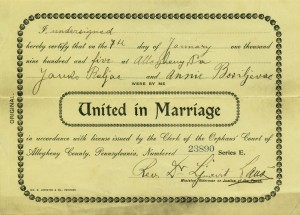 I undersigned
hereby certify that on the 7th day of January one thousand
nine hundred and five at Allegheny Pa
and Annie
WERE BY ME
United in Marriage
in accordance with license issued by the Clerk of the Orphans' Court of
Allegheny County, Pennsylvania, Numbered 23890 Series E.
Rev.
ORIGINAL